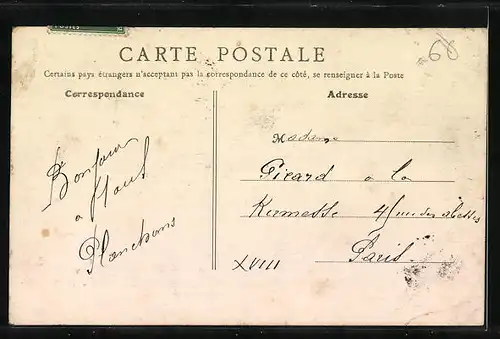 CARTE POSTALE
Certains pays étrangers n'acceptant pas la correspondance de ce côté, se renseigner à la Poste
Correspondance
Adresse
Bonjour
a tous
Planchons
Madame
Picard a la
Kermesse 4 rue des abesses
Paris
XVIII